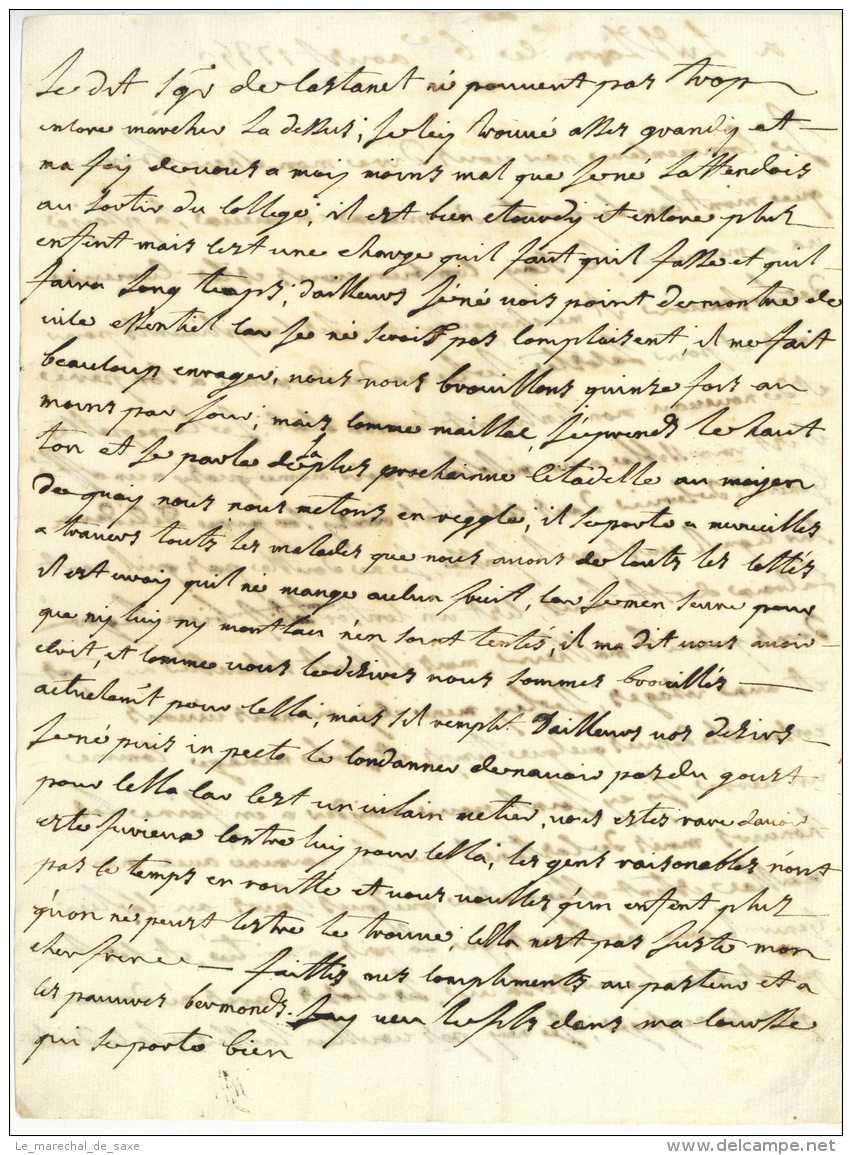 Le dit Sgr de Castanet né pouvent pas trop
encore marcher la dessus, Je ley trouvé asses grandy et
ma foy devous a moy moins mal que Jené Lattendois
au sortir du College, il est bien etourdy et encore plus
enfent mais cest une charge quil faut quil fasse et quil
faira Long temps, dailleurs Jené vois point demontre de
vice essentiel car Je né serois pas complaisent, il me fait
beaucoup enrager, nous nous brouillons quinse fois au
moins par Jour, mais comme maillac, Jeprends le haut
ton et Je parle de la plus prochainne Citadelle au moyen
de quoy nous nous metons en reggle, il seporte a merveilles
a travers touts les malades que nous avons de touts les cottés
il est vray quil ne mange aucun fruit, car Jemen seure pour
que ny luy ny montlau n'en soint tentés, il ma dit vous avoir
écrit, et comme vous ledesires nous sommes brouillés
actuelemt pour cella, mais sil remplit Dailleurs vos desirs
Jené puis in pecto le condanner denavoir pas du goust
pour cella car cest un vilain metier, vous estes rare davoir
esté furieux contre luy pour cella, les gens raisonables n'ont
pas le temps en routte et vous voulles q'un enfent plus
qu'on né peust lestre le trouve, cella nest pas Juste mon
cher frere — faittes mes compliments au pasteur et a
les pauvres bermonds. Jay veu le fils dans ma courसse
qui seporte bien
Le_marechal_de_saxe
www.delcampe.net